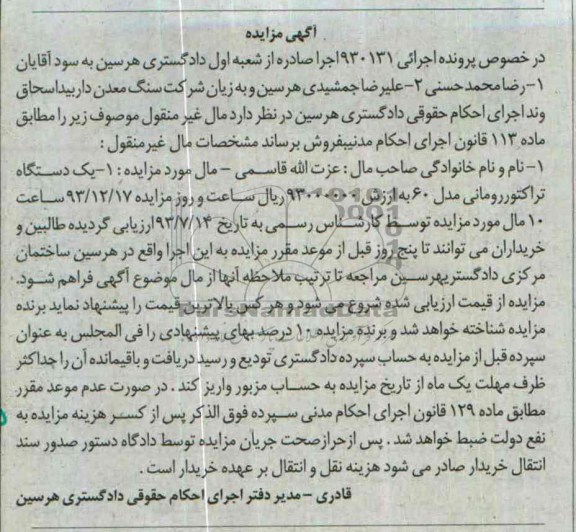 آگهی مزایده
در خصوص پرونده اجرائی ۹۳۰۱۳۱اجرا صادره از شعبه اول دادگستری هرسین به سود آقایان
۱-رضا محمد حسنی ۲-علیرضا جمشیدی هرسین و به زیان شرکت سنگ معدن داربید اسحاق
وند اجرای احکام حقوقی دادگستری هرسین در نظر دارد مال غیر منقول موصوف زیر را مطابق
ماده ۱۱۳ قانون اجرای احکام مدنیبفروش برساند مشخصات مال غیرمنقول :
۱-نام و نام خانوادگی صاحب مال : عزت الله قاسمی – مال مورد مزایده : ۱-یک دستگاه
تراکتوررومانی مدل ۶۰ به ارزش ریال ساعت و روز مزایده ۹۳/۱۲/۱۷ ساعت
۱۰ مال مورد مزایده توسط کارشناس رسمی به تاریخ ۹۳/۷/۱۴ارزیابی گردیده طالبین و
خریداران می توانند تا پنج روز قبل از موعد مقرر مزایده به این اجرا واقع در هرسین ساختمان
مرکزی دادگستریهرسین مراجعه تا ترتیب ملاحظه آنها از مال موضوع آگهی فراهم شود.
مزایده از قیمت ارزیابی شده شروع می شود و هر کس بالاترین قیمت را پیشنهاد نماید برنده
مزایده شناخته خواهد شد و برنده مزایده ۱۰ درصد بهای پیشنهادی را فی المجلس به عنوان
سپرده قبل از مزایده به حساب سپرده دادگستری تودیع و رسید دریافت و باقیمانده آن را حداکثر
ظرف مهلت یک ماه از تاریخ مزایده به حساب مزبور واریز کند . در صورت عدم موعد مقرر
مطابق ماده ۱۲۹ قانون اجرای احکام مدنی سپرده فوق الذکر پس از کسر هزینه مزایده به
نفع دولت ضبط خواهد شد . پس ازحرازصحت جریان مزایده توسط دادگاه دستور صدور سند
انتقال خریدار صادر می شود هزینه نقل و انتقال بر عهده خریدار است .
قادری – مدیر دفتر اجرای احکام حقوقی دادگستری هرسین